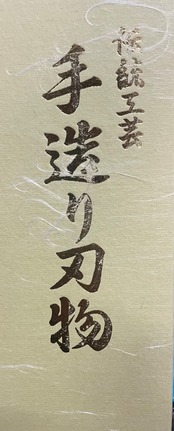 伝統工芸
手造り刃物